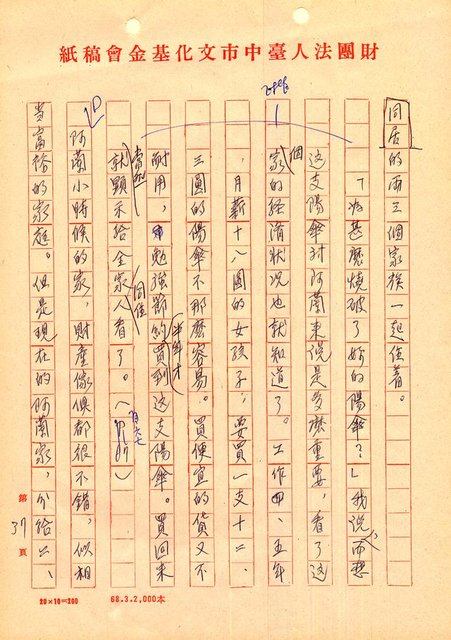 財團法人臺中市文化基金會稿紙
同居的兩三個家族一起住着。
「為甚麼燒破了妳的陽傘？」我說，而想
這支陽傘對阿蘭來說是多麼重要，看了這
個家的經濟狀況也就知道了。工作四、五年
，月薪十八圓的女孩子，要買一支十二、
三圓的陽傘不那麼容易。買便宜的貨又不
耐用，勉強節約半年才買到這支陽傘。買回來
當然就顯示給全家人看了。
阿蘭小時候的家，財產傢俱都很不錯，似相
當富裕的家庭。但是現在的阿蘭家，分給二、
第37頁
20×10=200
68.3.2,000本